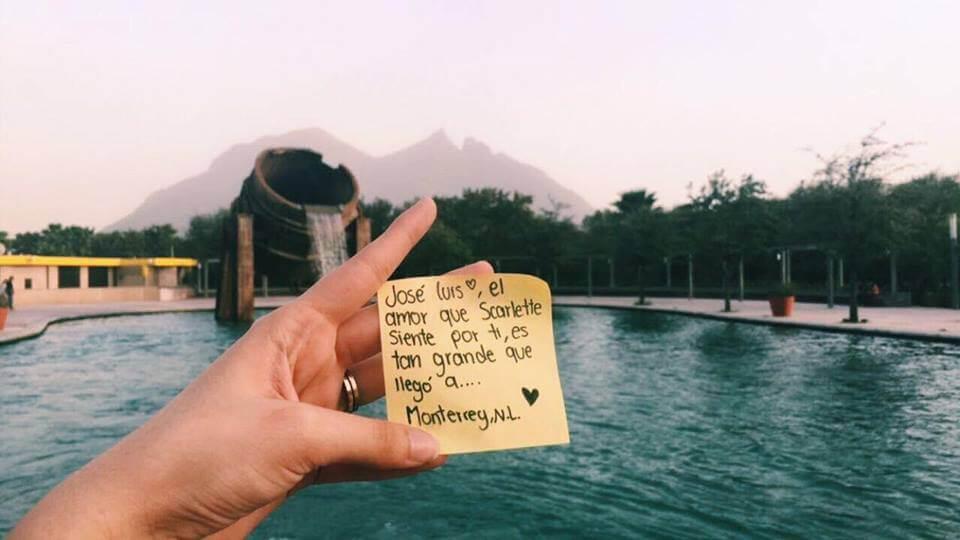 José luis♡, el
amor que Scarlette
siente por ti, es
tan grande que
llegó a....
Monterrey, N.L. ♥